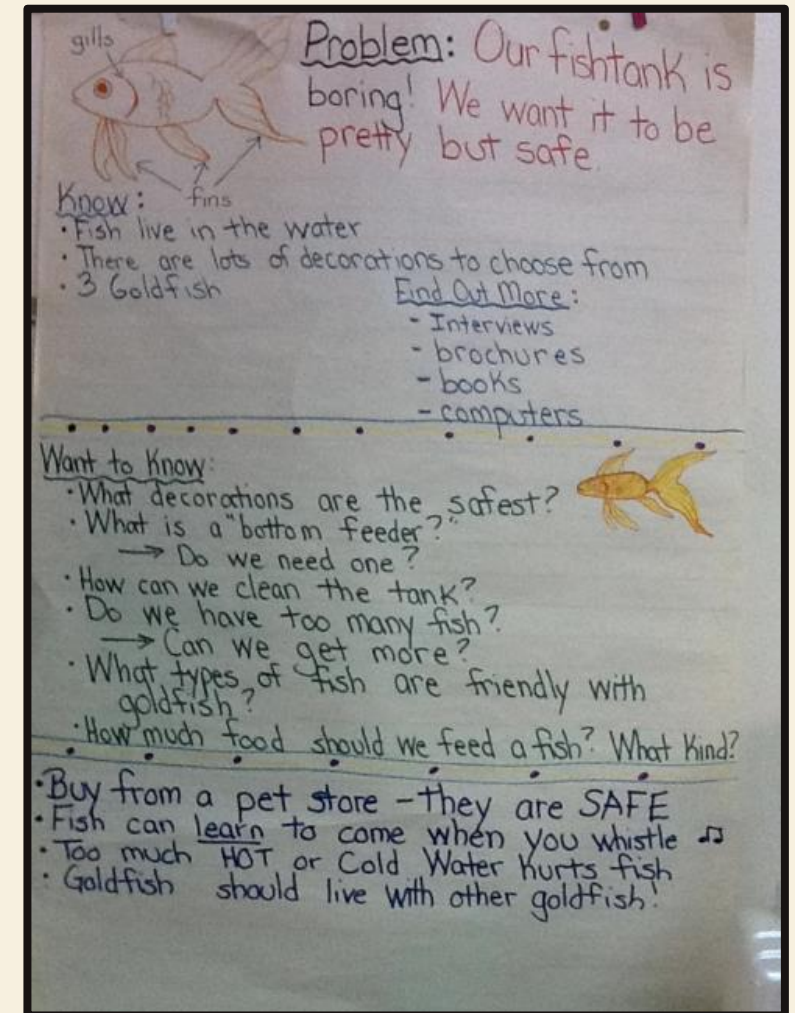 gills
Problem: Our fishtank is
boring! We want it to be
pretty but safe.
fins
Know:
• Fish live in the water
• There are lots of decorations to choose from
• 3 Goldfish
Find Out More:
- Interviews
- brochures
- books
- computers
Want to Know:
• What decorations are the safest?
• What is a "bottom feeder?"
→ Do we need one?
• How can we clean the tank?
• Do we have too many fish?
→ Can we get more?
• What types of fish are friendly with
goldfish?
• How much food should we feed a fish? What Kind?
• Buy from a pet store - they are SAFE
• Fish can learn to come when you whistle ♫
• Too much HOT or Cold Water hurts fish
• Goldfish should live with other goldfish!